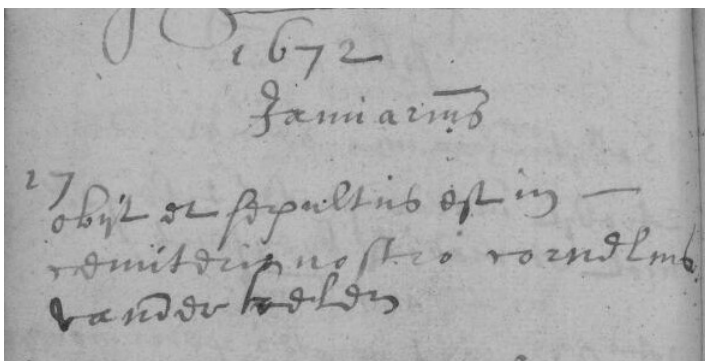 1672
Januarius
27
obijt et sepultus est in
cemiterio nostro cornelius
vander heelden